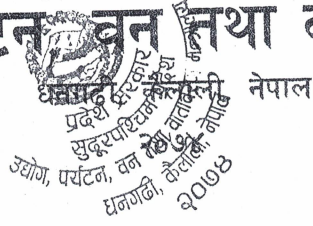 टन, वन तथा व
धनगढी, कैलाली नेपाल
प्रदेश सरकार
सुदूरपश्चिम प्रदेश
उद्योग, पर्यटन, वन तथा वातावरण
धनगढी, कैलाली, नेपाल
२०७४